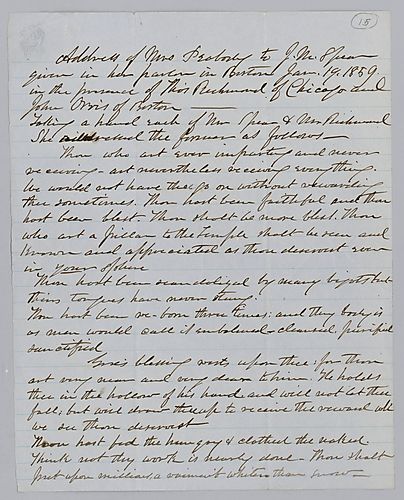 15
Address of Mrs Peabody to J. M. Spear
given in her parlor in Boston Jan. 19. 1859
in the presence of Thos Richmond of Chicago and
John Orvis of Boston
Taking a hand each of Mr Spear & Mr Richmond
She addressed the former as follows—
Thou who art ever imparting and never
receiving – art nevertheless receiving everything.
We would not have thee go on without rewarding
thee sometimes. Thou hast been faithful and thou
hast been blest. Thou shalt be more blest. Thou
who art a pillar to the temple shalt be seen and
known and appreciated as thou deservest even
in your sphere
Thou hast been scandalized by many bigots but
their tongues have never stung.
Thou hast been re-born three times; and thy body is
as men would call it embalmed – cleansed, purified
sanctified
God's blessing rests upon thee; for thou
art very near and very dear to him. He holds
thee in the hollow of his hand and will not let thee
fall; but will draw thee up to receive the reward which
we see thou deservest
Thou hast fed the hungry & clothed the naked.
Think not thy work is nearly done – Thou shalt
put upon millions, a raiment whiter than snow—